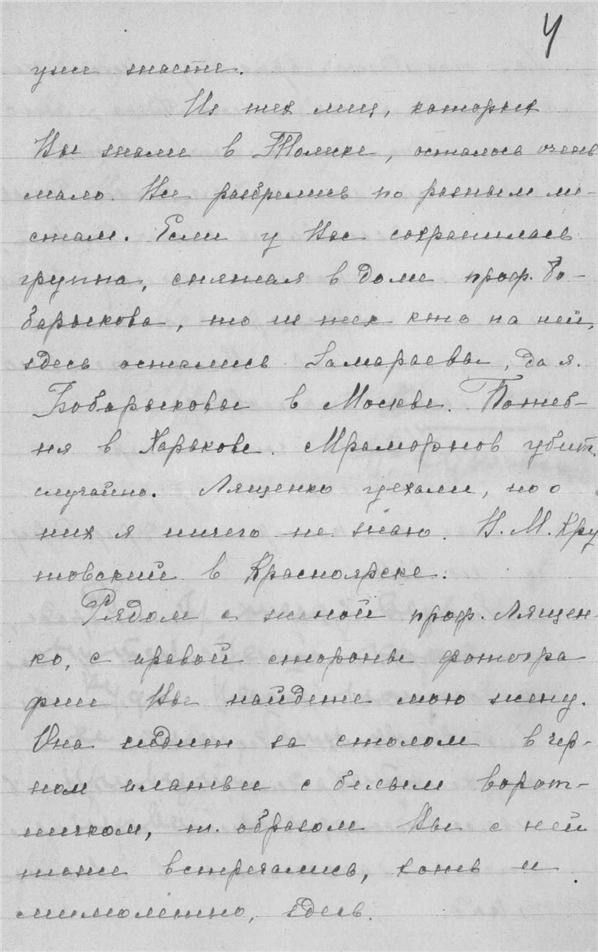 4
уже знаете.
Из тех лиц, которых
Вы знали в Томске, осталось очень
мало. Все разбрелись по разным ме-
стам. Если у Вас сохранилась
группа, снятая в доме проф. Бо-
барыкова, то из тех кто на ней,
здесь остались Замараевы, да я.
Бобарыковы в Москве. Потеб-
ня в Харькове. Мраморнов убит
случайно. Лященко уехали, но о
них я ничего не знаю. В. М. Кру
товский в Красноярске.
Рядом с женой проф. Лящен-
ко, с правой стороны фотогра
фии Вы найдете мою жену.
Она сидит за столом в чер-
ном платьи с белым ворот-
ничком, т. образом Вы с ней
тоже встречались, хоть и
мимолетно, здесь.